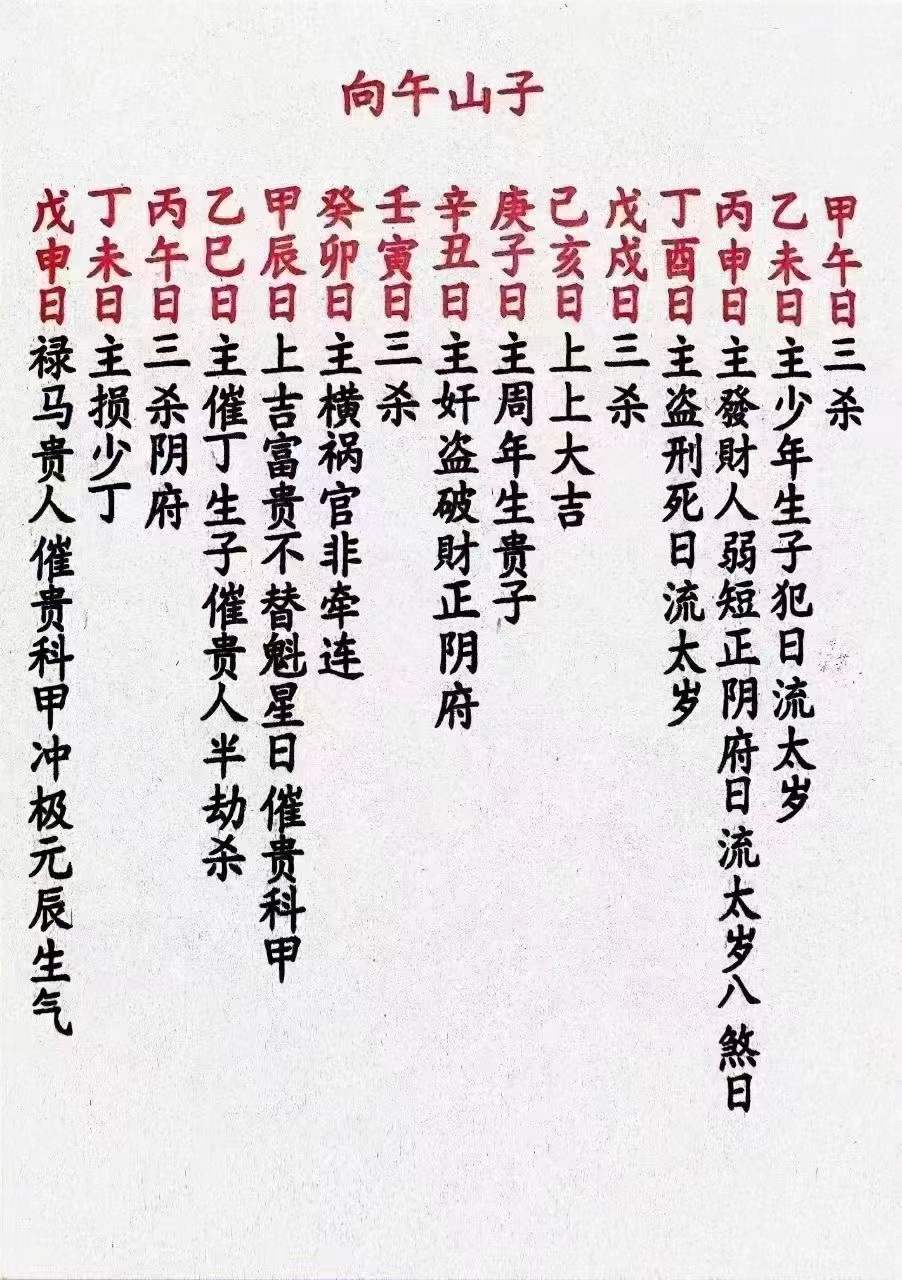 子山午向
甲午日三杀
乙未日主少年生子犯日流太岁
丙申日主發財人弱短正阴府日流太岁八煞日
丁酉日主盗刑死日流太岁
戊戍日三杀
己亥日上上大吉
庚子日主周年生贵子
辛丑日主奸盗破財正阴府
壬寅日三杀
癸卯日主横祸官非牵连
甲辰日上吉富贵不替魁星日催贵科甲
乙巳日主催丁生子催贵人半劫杀
丙午日三杀阴府
丁未日主损少丁
戊申日禄马贵人催贵科甲冲极元辰生气